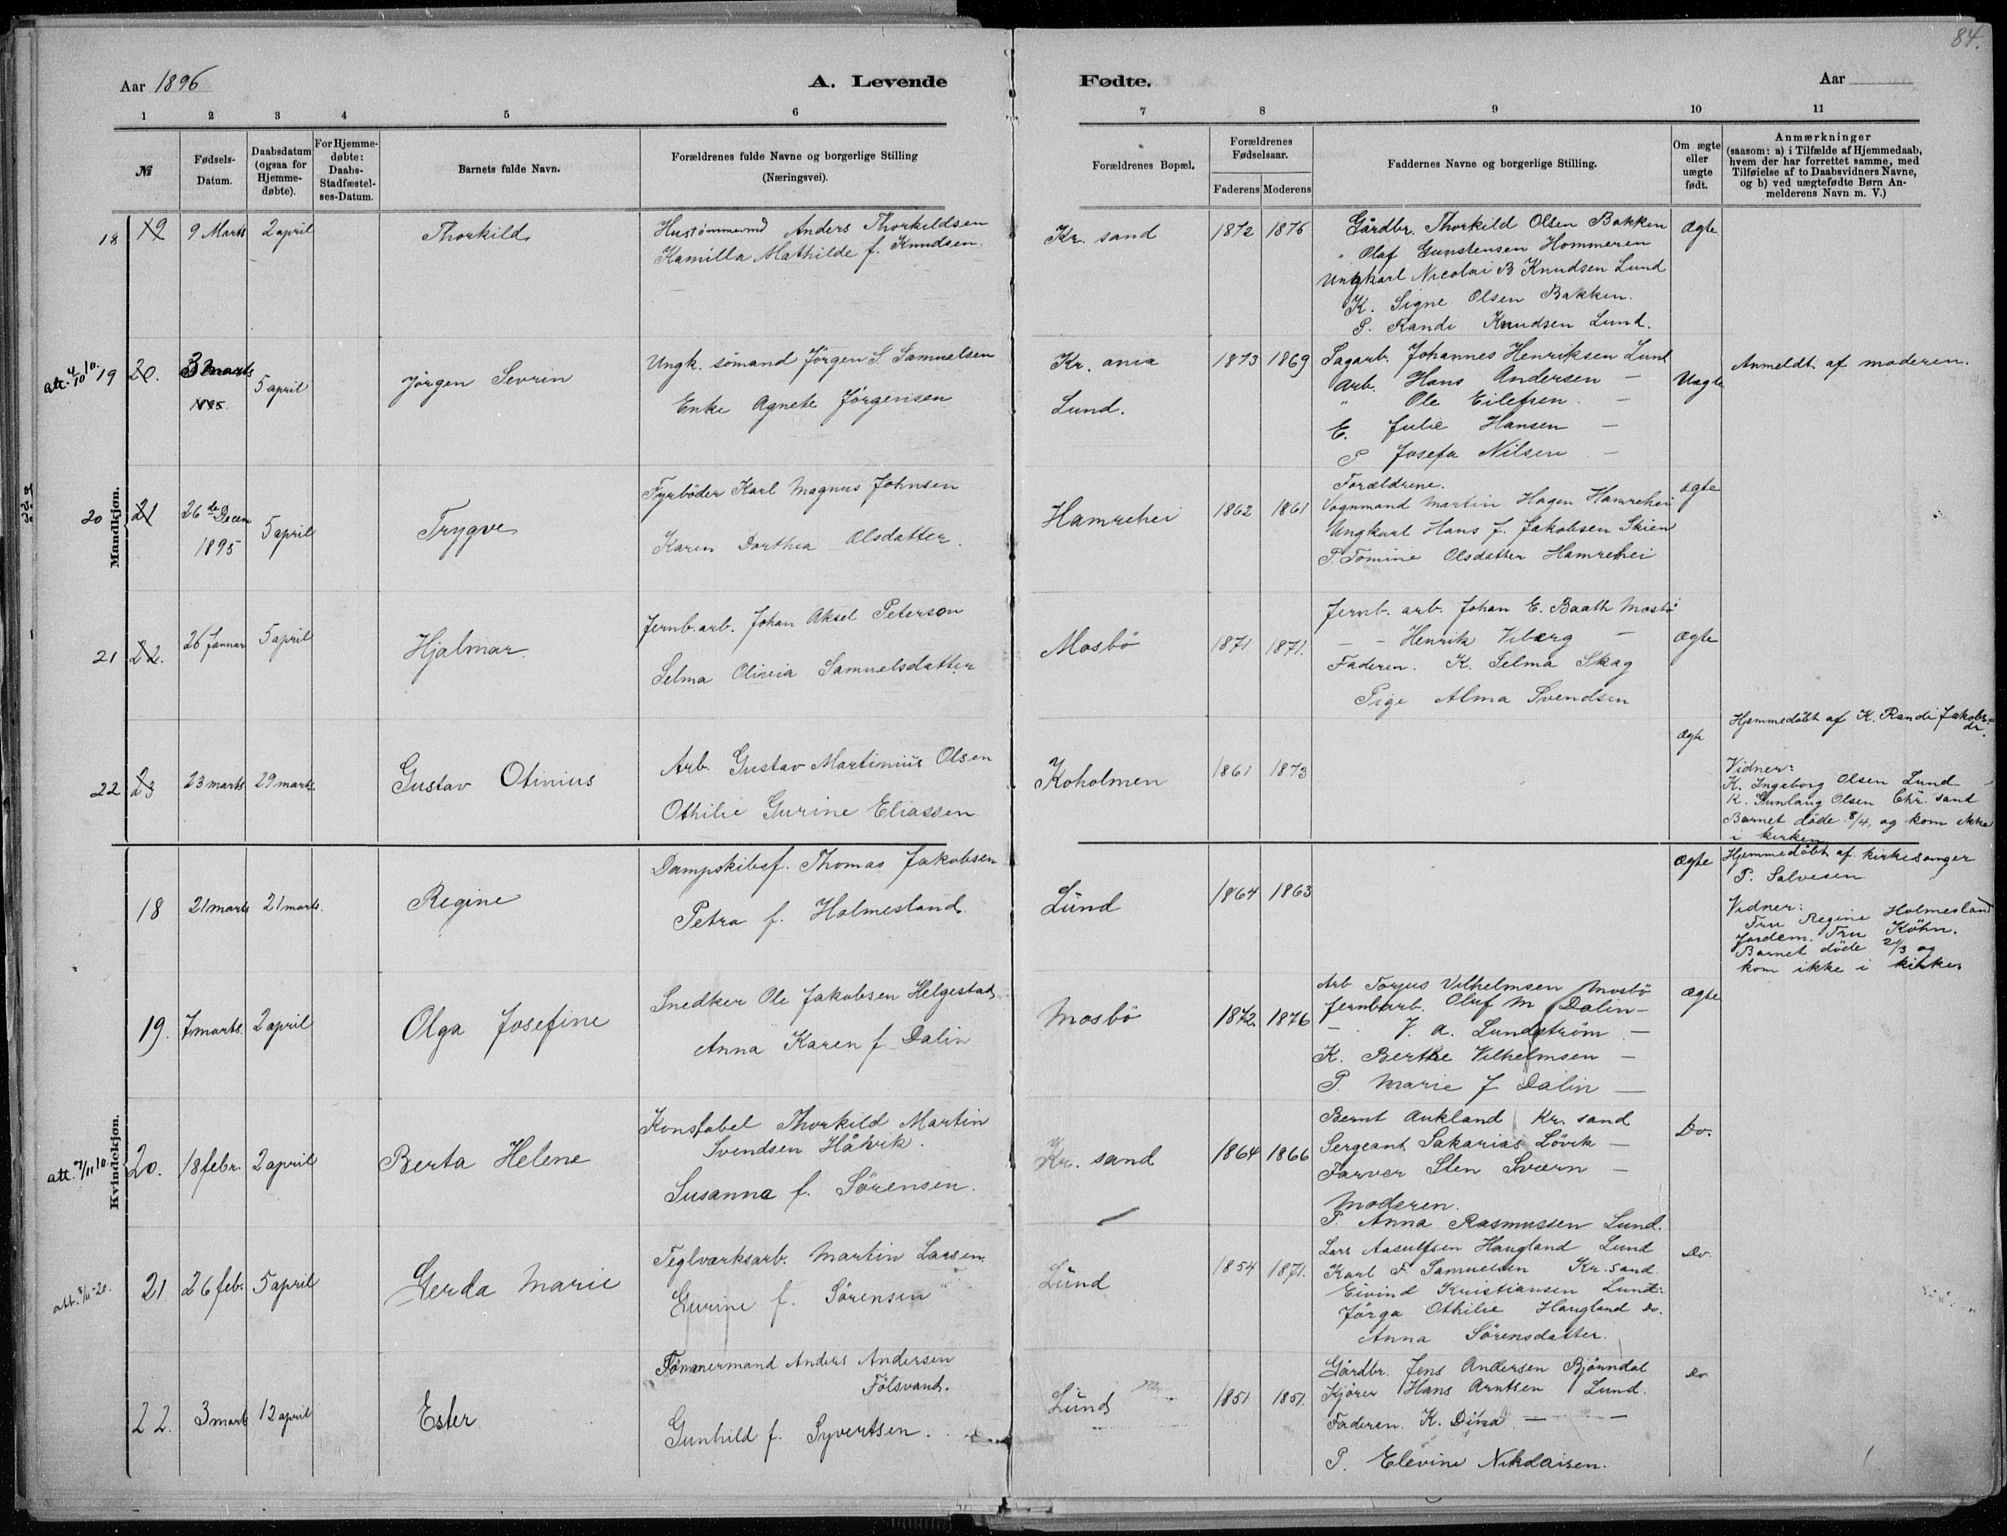 84.
Aar 1896
A. Levende
Fødte.
Aar
1 2 3 4 5 6 7 8 9 10 11
№
Fødsels-Datum.
Daabsdatum (ogsaa for Hjemme-døbte).
For Hjemme-døbte: Daabs-Stadfæstel-ses-Datum.
Barnets fulde Navn.
Forældrenes fulde Navne og borgerlige Stilling
(Næringsvei).
Forældrenes Bopæl.
Forældrenes Fødselsaar.
Faderens Moderens
Faddernes Navne og borgerlige Stilling.
Om ægte eller uægte født.
Anmærkninger
(saasom: a) i Tilfælde af Hjemmedaab,
hvem der har forrettet samme, med
Tilføielse af to Daabsvidners Navne,
og b) ved uægtefødte Børn An-
melderens Navn m. V.)
Mandkjøn.
18 19 9 Marts 2 april Thorkild
Anders Thorkildsen
Kamilla Mathilde f. Knudsen.
Kr. sand 1872 1875
Gårdbr. Thorkild Olsen Bakken
" Olaf Gunstensen Hommeren
Ungkarl Nicolai B Knudsen Lund
K. Signe Olsen Bakken.
P. Randi Knudsen Lund.
Ægte
att. 4/10 10. 19 20. 3 marts 1895 5 april Jørgen Sevrin
Ungk. sømand Jørgen S. Samuelsen
Enke Agnete Jørgensen
Kr. ania
Lund.
1873 1869
Sagarb. Johannes Henriksen Lund
Arb. Hans Andersen —
" Ole Eilefsen. —
E. Julie Hansen —
P Josefa Nilsen —
Uægte
Anmeldt af moderen.
20 21 26de Decem 1895 5 april Trygve
Fyrbøder Karl Magnus Johnsen
Karen Dorthea Olsdatter.
Hamrehei 1862 1861
Forældrene.
Vognmand Martin Hagen Hamrehei
Ungkarl Hans J. Jakobsen Skien
P. Tomine Olsdatter Hamrehei
ægte
21 22. 26 Januar 5 april Hjalmar.
Jernb. arb. Johan Aksel Peterson
Selma Olivia Samuelsdatter.
Mosbö 1871 1871.
Jernb. arb. Johan E. Baath Mosbö
— - Henrik Viberg —
Faderen. K. Selma Skag
Pige Alma Svendsen
Ægte
22 23 23 marts 29 marts. Gustav Otinius
Arb. Gustav Martinius Olsen
Othilie Gurine Eliassen
Koholmen 1861 1873
Ægte
Hjemmedöbt af K. Randi Jakobs-
dr.
Vidner:
K. Ingeborg Olsen Lund —
K. Gunlaug Olsen Chr. sand
Barnet døde 8/4, og kom ikke
i kirken
Kvindekjøn.
18 21 marts 21 marts. Regine
Dampskibsf. Thomas Jakobsen
Petra f. Holmesland.
Lund 1864 1863
Ægte
Hjemmedöbt af kirkesanger
P. Salvesen
Vidner:
Fru Regine Holmesland
Jordem. Fru Köhn.
Barnet døde 21/3 og
kom ikke i kirken
19. 7 marts. 2 april Olga Josefine
Snedker Ole Jakobsen Helgestad.
Anna Karen f Dalin
Mosbö 1872. 1876
Arb Torjus Vilhelmsen Mosbö
Jernbarb. Oluf M Dalin —
— J. A. Lundström —
K. Berthe Vilhelmsen —
P. Marie J Dalin —
Ægte
att. 7/11 10. 20. 18 febr. 2 april Berta Helene
Konstabel Thorkild Martin
Svendsen Håvik.
Susanna f. Sørensen.
Kr. sand 1864 1866
Bernt Aukland Kr. sand
Sergeant Sakarias Lövik —
Farver Sten Sværn —
Moderen.
P. Anna Rasmussen Lund.
Do.
att. 8/11-20. 21. 26 feb. 5 april Gerda Marie
Teglværksarb. Martin Larsen.
Gurine f. Sörensen
Lund 1854 1871.
Lars Aasulfsen Haugland Lund
Karl F Samuelsen Kr. sand.
Eivind Kristiansen Lund.
Jörga Othilie Haugland Do.
Anna Sörensdatter.
Do.
22. 3 marts. 12 april Ester
Tømmermand Anders Andersen
Fölsvand.
Gunhild f. Syvertsen.
Lund 1851 1851.
Gårdbr. Jens Andersen Bjönndal
Kjörer Hans Arntsen Lund.
Faderen. K. Dina — —
P. Elevine Nikolaisen.
Do